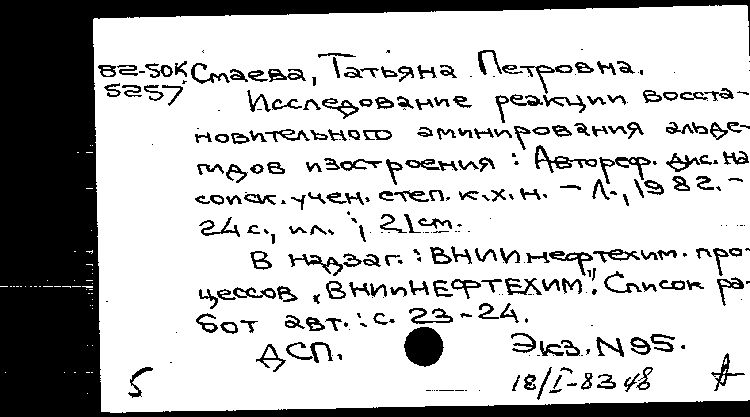 82-50К Смаева, Татьяна Петровна.
5257
Исследование реакции восста-
новительного аминирования альде-
гидов изостроения : Автореф. дис. на
соиск. учен. степ. к.х.н. - Л., 1982. -
24 с., ил. ; 21 см.
В надзаг. : ВНИИ нефтехим. про-
цессов „ВНИИНЕФТЕХИМ". Список ра-
бот авт. : с. 23-24.
ДСП. Экз. N 95.
5 18/I-8348